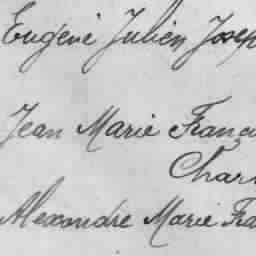 Eugène Julien Josep
Jean Marie Franço
Char
Alexandre Marie Fra